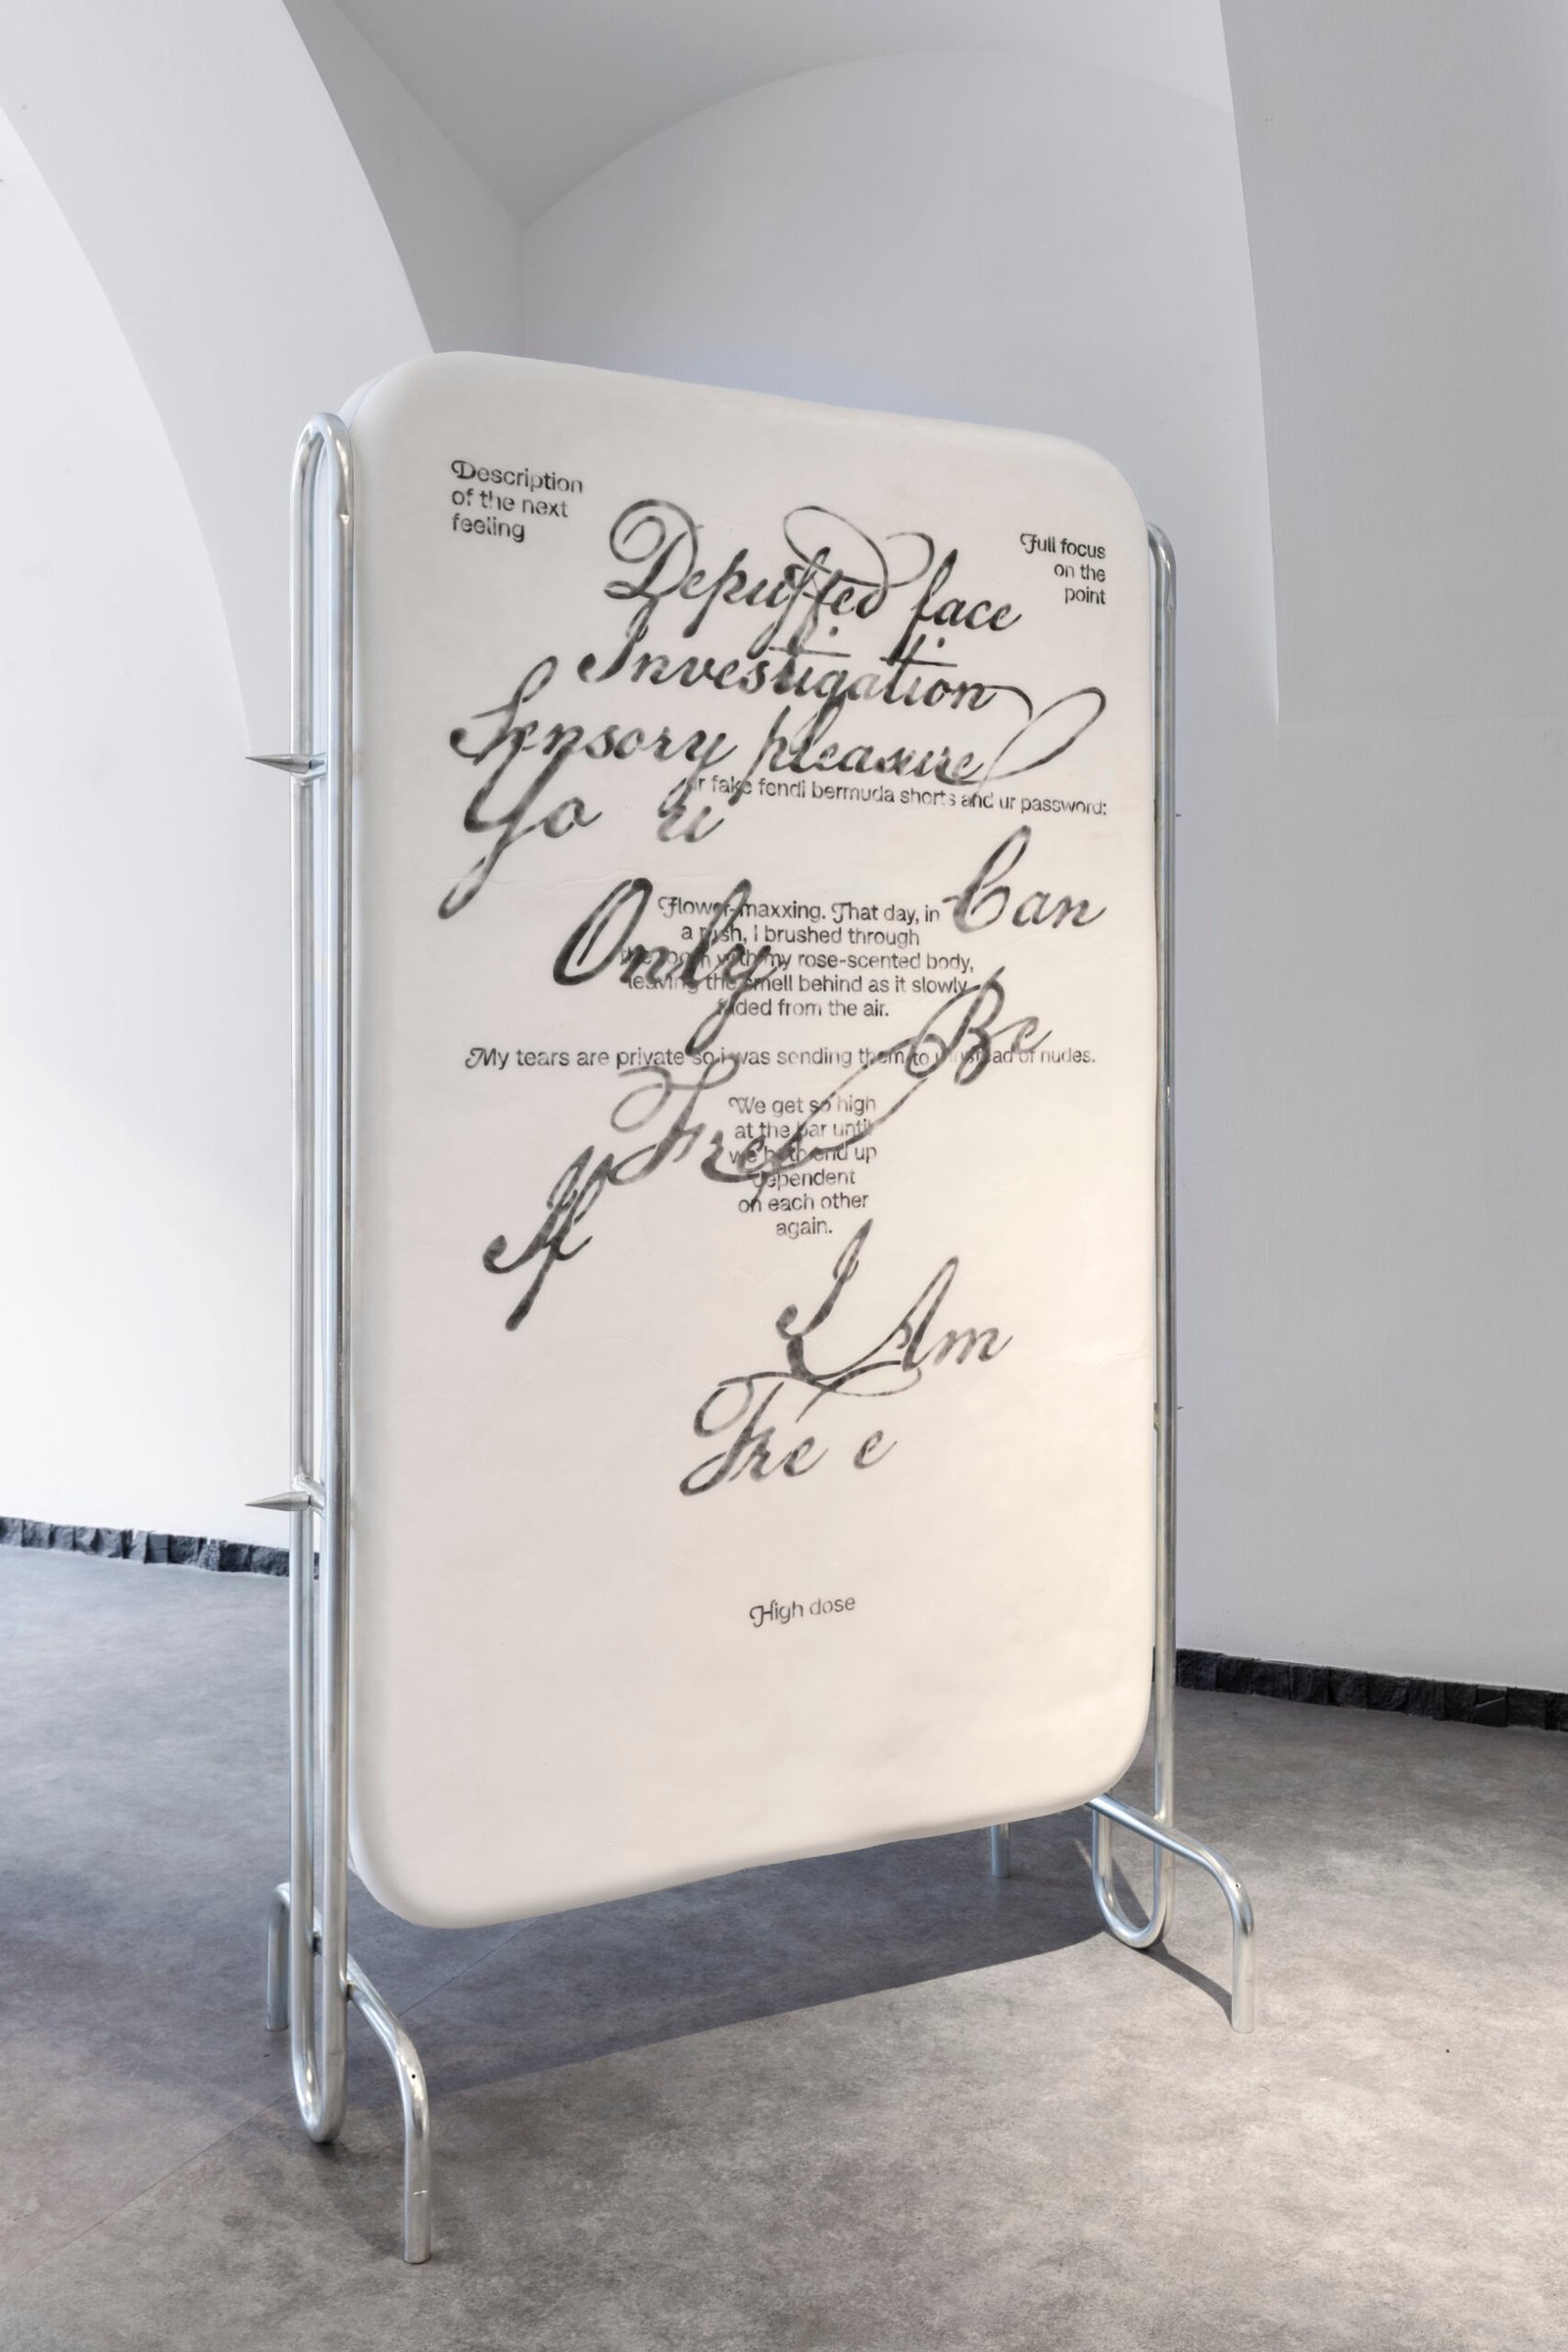 Description
of the next
feeling
Full focus
on the
point
Depuffed face
Investigation
Sensory pleasure
ur fake fendi bermuda shorts and ur password:
Yo u
Only
Can
Flower-maxxing. That day, in
a rush, I brushed through
the room with my rose-scented body,
leaving the smell behind as it slowly
faded from the air.
Be
My tears are private so i was sending them to u instead of nudes.
Free
We get so high
at the bar until
we both end up
dependent
on each other
again.
If
I Am
Fre e
High dose